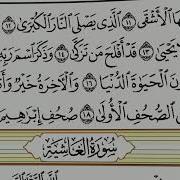 ـهَا الْأَشْقَى ﴿١١﴾ الَّذِي يَصْلَى النَّارَ الْكُبْرَىٰ ﴿١٢﴾
يَحْيَىٰ ﴿١٣﴾ قَدْ أَفْلَحَ مَن تَزَكَّىٰ ﴿١٤﴾ وَذَكَرَ اسْمَ رَبِّهِ
ـونَ الْحَيَوٰةَ الدُّنْيَا ﴿١٦﴾ وَالْآخِرَةُ خَيْرٌ وَأَ
الصُّحُفِ الْأُولَىٰ ﴿١٨﴾ صُحُفِ إِبْرَٰهِيمَ
سُورَةُ الْغَاشِيَةِ